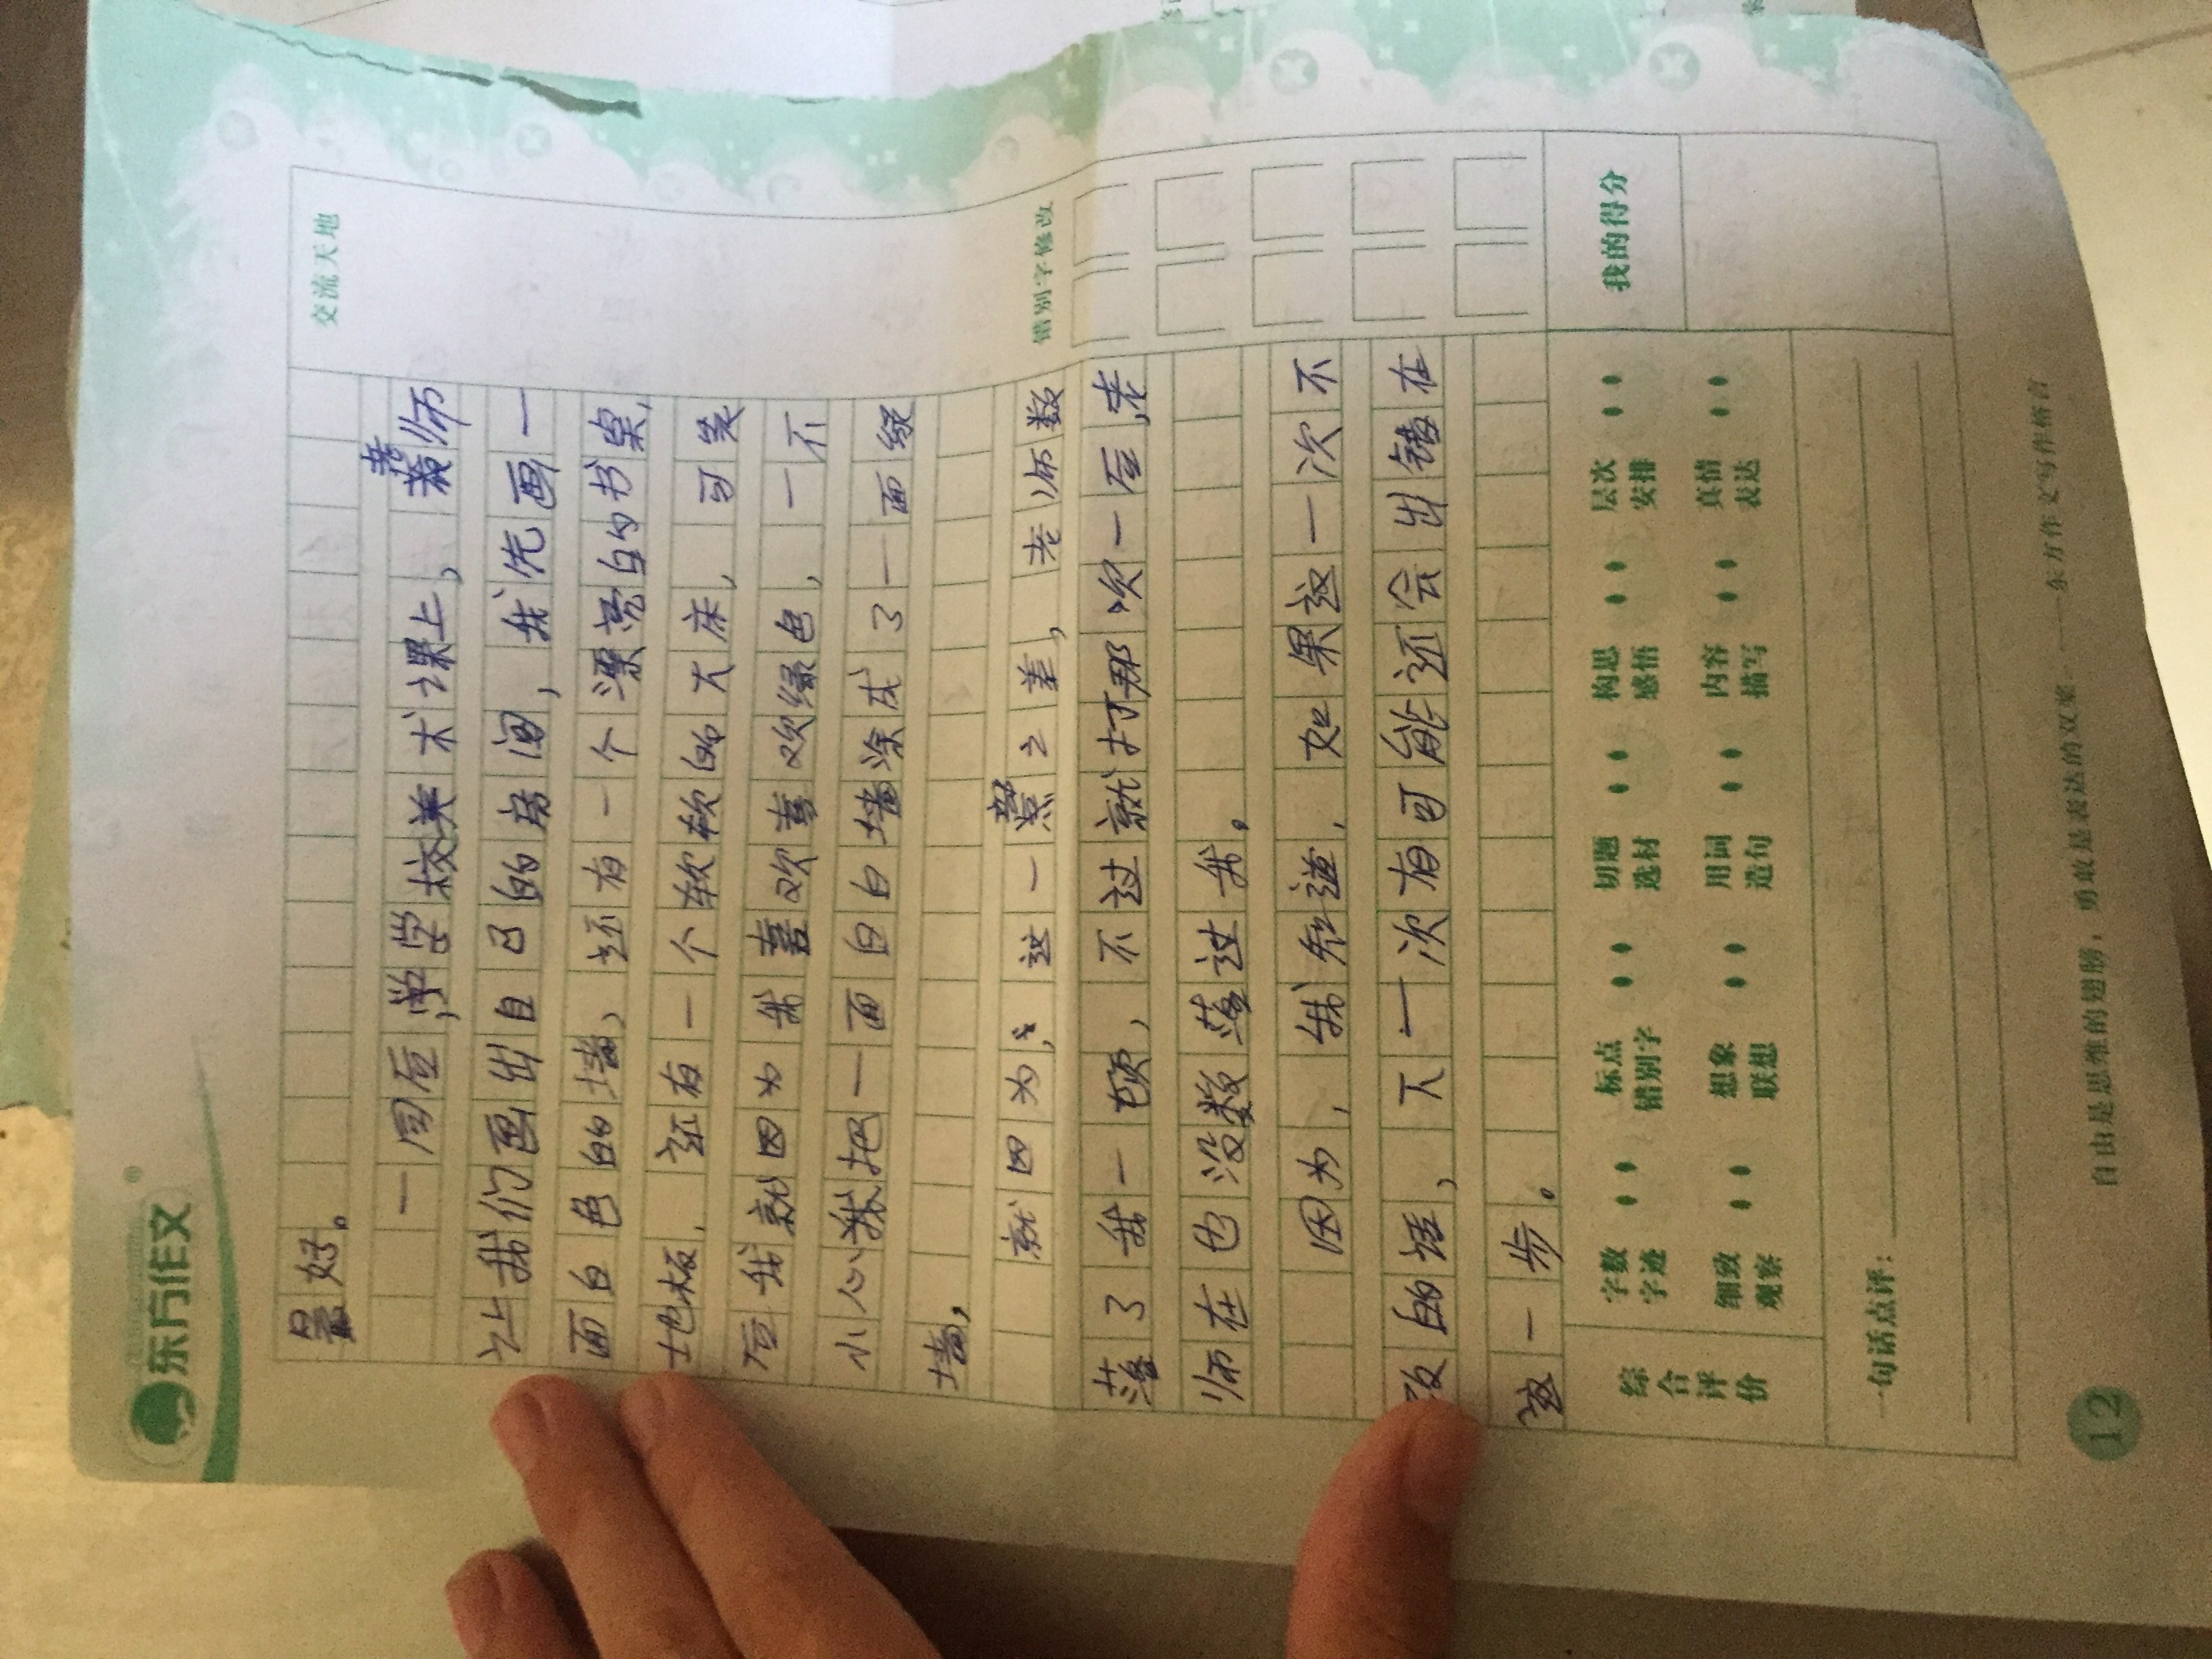 东方作文®
交流天地
最好。
一周后，学学校美术课上，老师
让我们画出自己的房间，我先画一
面白色的墙，还有一个漂亮的书桌，
地板，还有一个软软的大床，可笑
后我就因为我喜欢喜欢绿色，一不
小心我把一面白白墙涂成了一面绿
墙，
就因为，这一墨之差，老师数
落了我一顿，不过就打那次一后，老
师在也没数落过我。
因为，我知道，如果这一次不
改的话，下一次有可能还会出错在
这一步。
错别字修改
综合评价
字数字迹
标点错别字
切题选材
构思感悟
层次安排
细致观察
想象联想
用词造句
内容描写
真情表达
我的得分
一句话点评：
12
自由是思维的翅膀，勇敢是表达的双桨。——东方作文写作格言